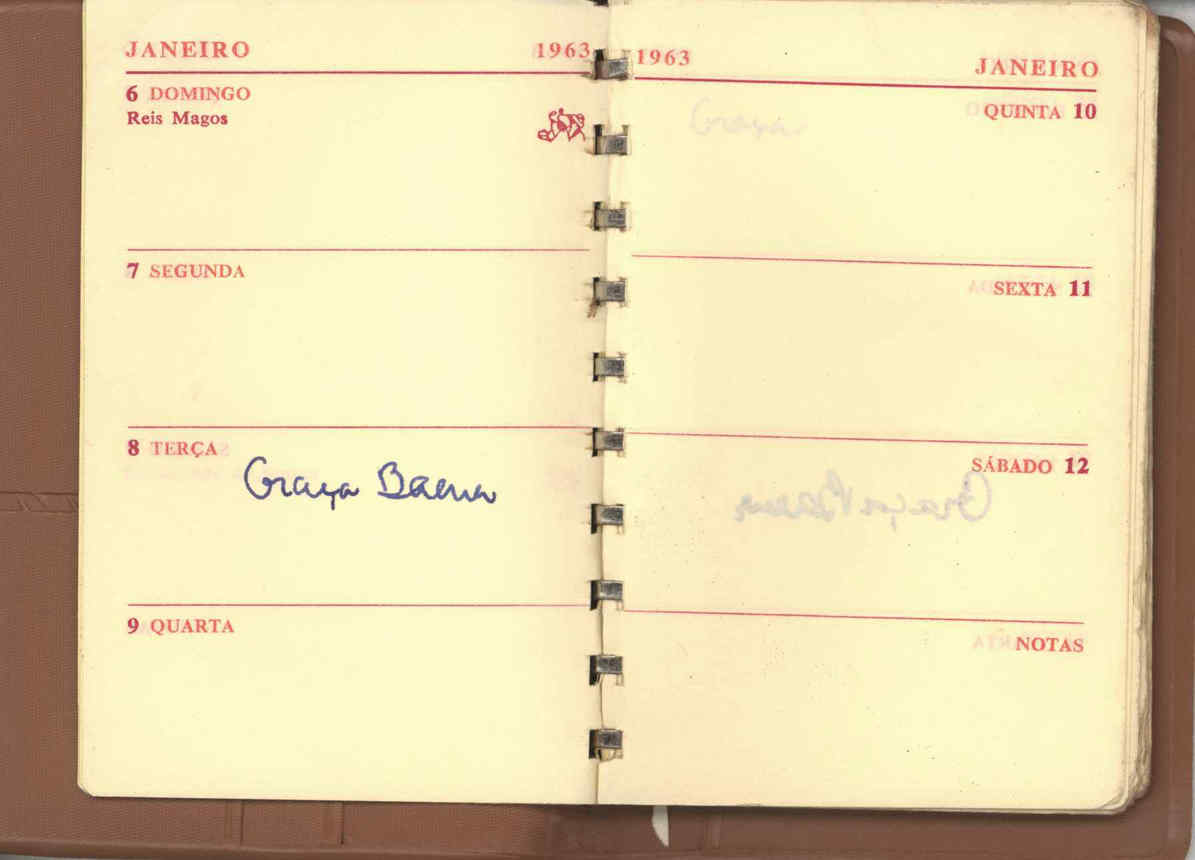 JANEIRO 1963
6 DOMINGO
Reis Magos
7 SEGUNDA
8 TERÇA
Graça Baena
9 QUARTA
1963 JANEIRO
QUINTA 10
Graça
SEXTA 11
SÁBADO 12
NOTAS